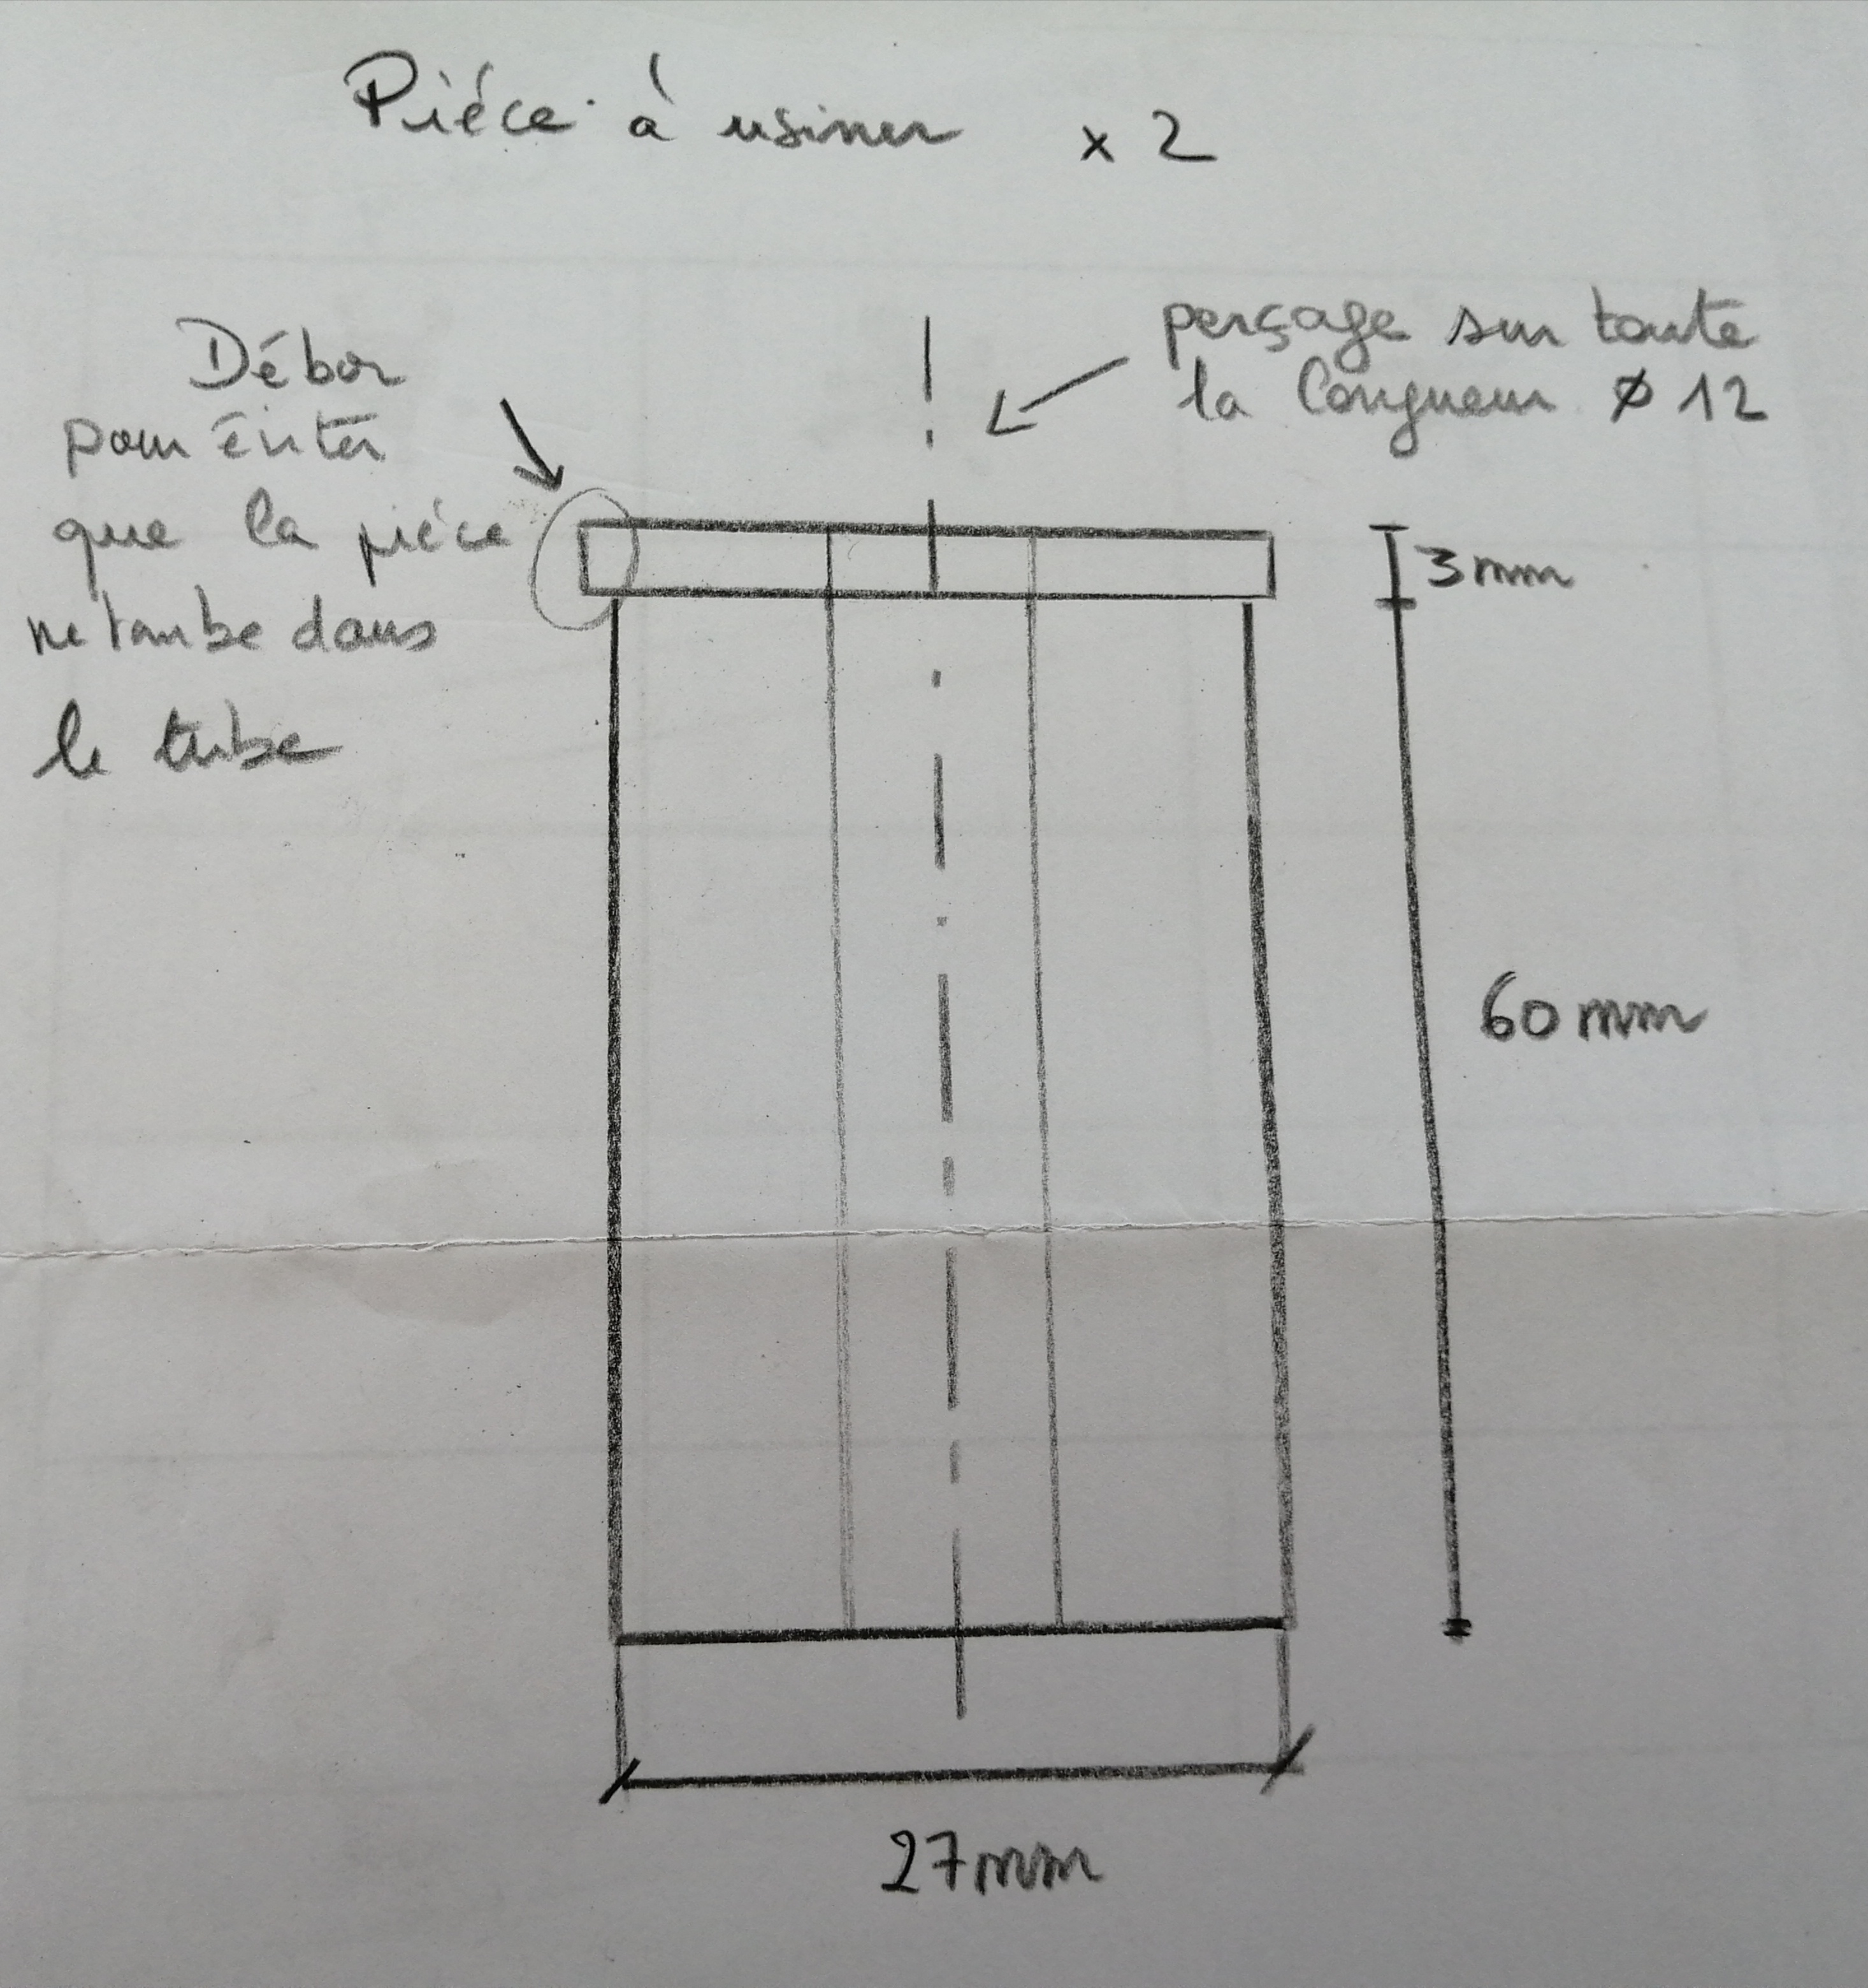 Piéce à usiner x 2
perçage sur toute
la longueur ø 12
Débor
pour éviter
que la piéce
ne tombe dans
le tube
3mm
60mm
27mm